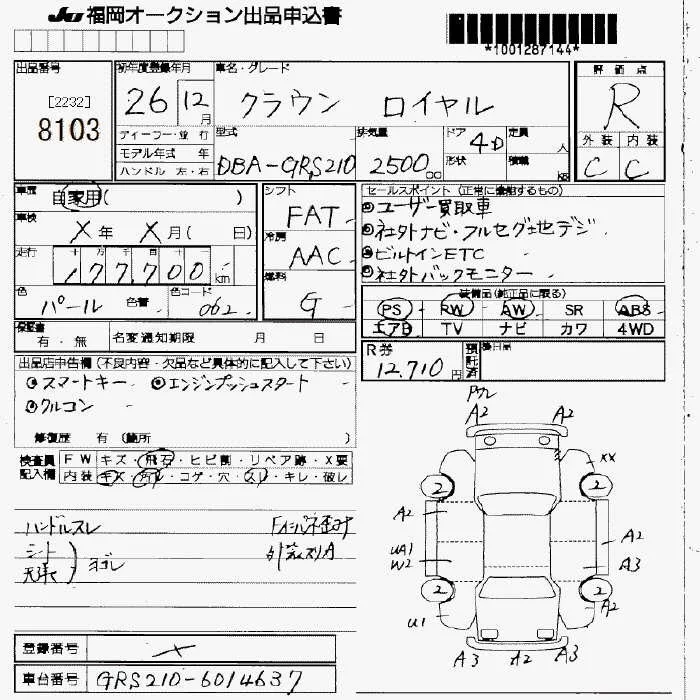 JU 福岡オークション出品申込書
*1001287144*
出品番号
[2232]
8103
初年度登録年月
26 12月
車名・グレード
クラウン ロイヤル
評価点
R
外装 内装
C C
ディーラー・並行
モデル年式 年
ハンドル 左・右
型式
DBA-GRS210
排気量
2500cc
ドア
4D
形状
定員
人
積載
kg
車歴
自家用( )
車検
X年 X月( 日)
走行
177,700 km
色
パール 色替
色コード
062
シフト
FAT
冷房
AAC
燃料
G
セールスポイント (正常に機能するもの)
ユーザー買取車
社外ナビ・フルセグ地デジ
ビルトインETC
社外バックモニター
装備品(純正品に限る)
PS PW AW SR ABS
エアB TV ナビ カワ 4WD
保証書
有・無
名変通知期限 月 日
R券
12,710円
預託済
後日品
出品店申告欄 (不良内容・欠品など具体的に記入して下さい)
スマートキー エンジンプッシュスタート
クルコン
修復歴 有 (箇所 )
検査員記入欄
FW キズ・飛石・ヒビ割・リペア跡・X要
内装 キズ・汚レ・コゲ・穴・スレ・キレ・破レ
ハンドルスレ
シート
天張
ヨゴレ
A2 A2
XX
2 2
A2 A2
UA1
W2 A3
2 2
A2
U1
A3 A2 A3
登録番号 X
車台番号 GRS210-6014637